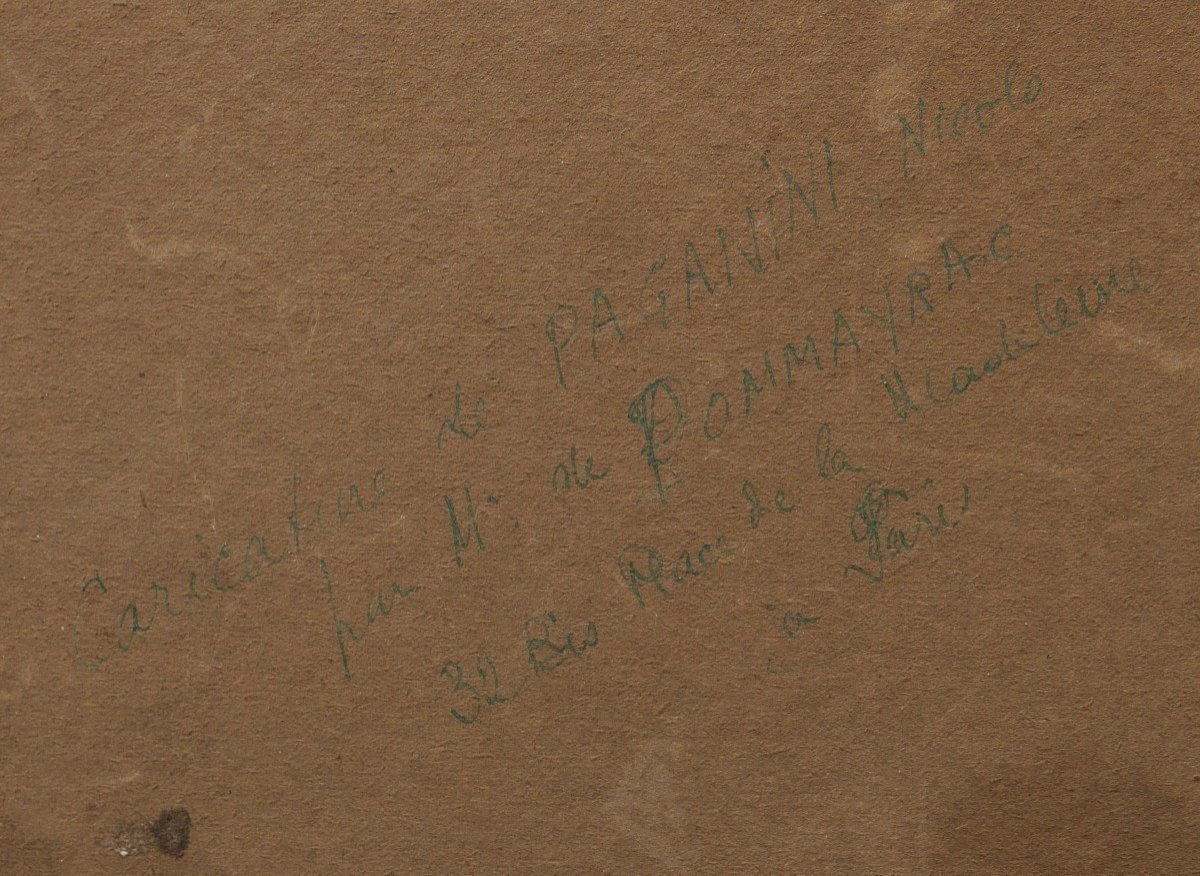 Caricature de PAGANINI, Nicolo
par Mr de POMMAYRAC
32 Bis Place de la Madeleine
à Paris